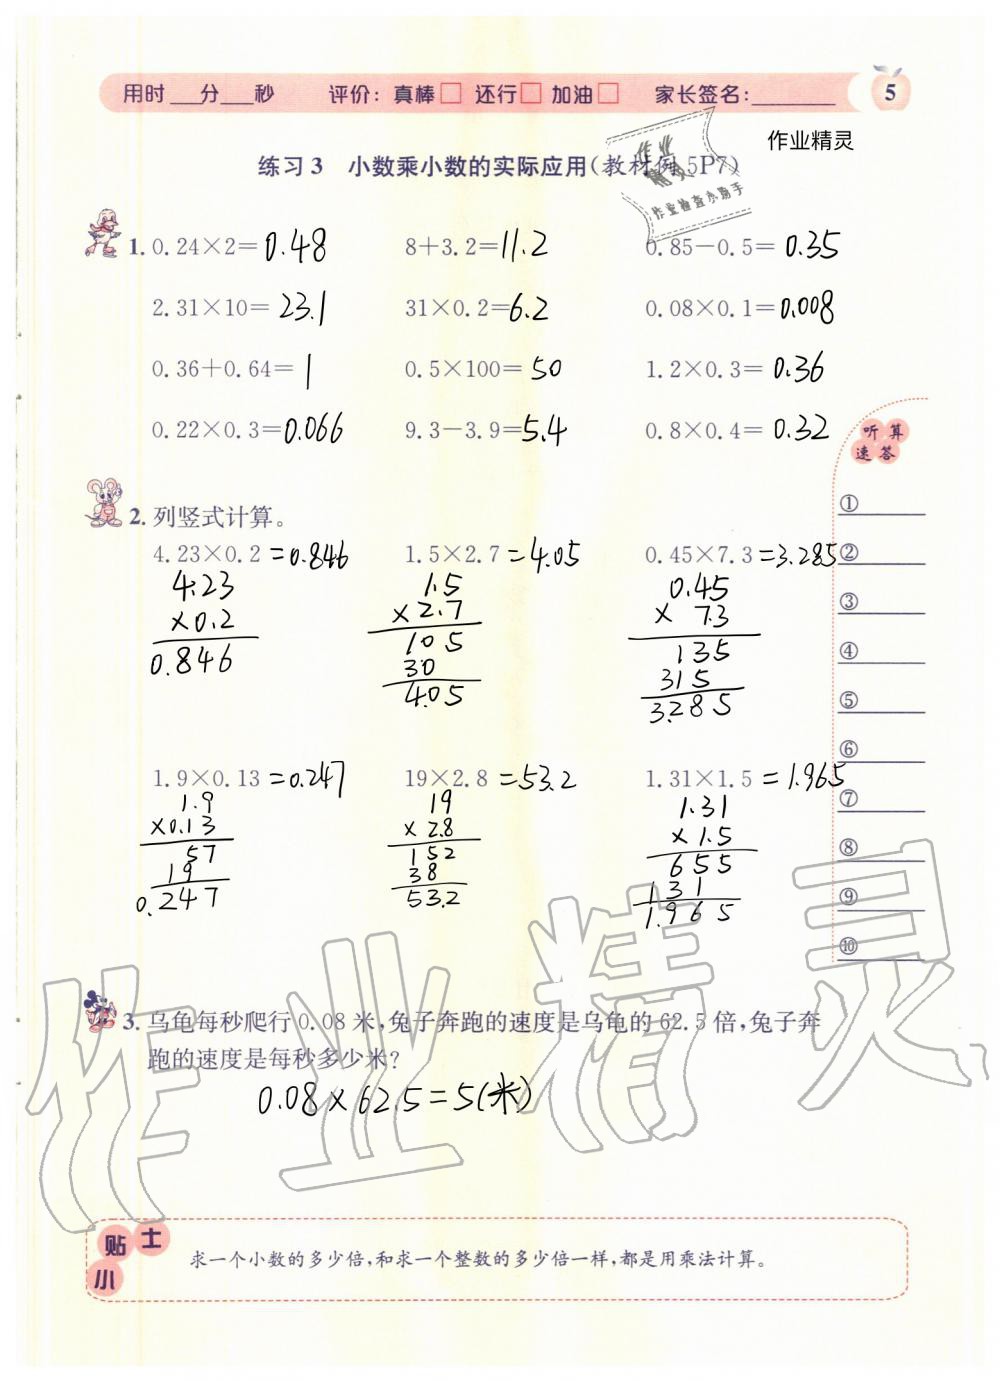 用时___分___秒 评价：真棒□ 还行□ 加油□ 家长签名：________ 5
作业精灵
作业
精灵
作业检查小助手
练习3 小数乘小数的实际应用(教材例5P7)
1. 0.24×2=0.48 8+3.2=11.2 0.85-0.5=0.35
2.31×10=23.1 31×0.2=6.2 0.08×0.1=0.008
0.36+0.64=1 0.5×100=50 1.2×0.3=0.36
0.22×0.3=0.066 9.3-3.9=5.4 0.8×0.4=0.32
听算
速答
①
②
③
④
⑤
⑥
⑦
⑧
⑨
⑩
2. 列竖式计算。
4.23×0.2=0.846 1.5×2.7=4.05 0.45×7.3=3.285
4.23 1.5 0.45
×0.2 ×2.7 × 7.3
0.846 105 135
30 315
4.05 3.285
1.9×0.13=0.247 19×2.8=53.2 1.31×1.5=1.965
1.9 19 1.31
×0.13 × 2.8 × 1.5
57 152 655
19 38 131
0.247 53.2 1.965
3. 乌龟每秒爬行0.08米,兔子奔跑的速度是乌龟的62.5倍,兔子奔
跑的速度是每秒多少米?
0.08×62.5=5(米)
作业精灵
小贴士
求一个小数的多少倍,和求一个整数的多少倍一样,都是用乘法计算。